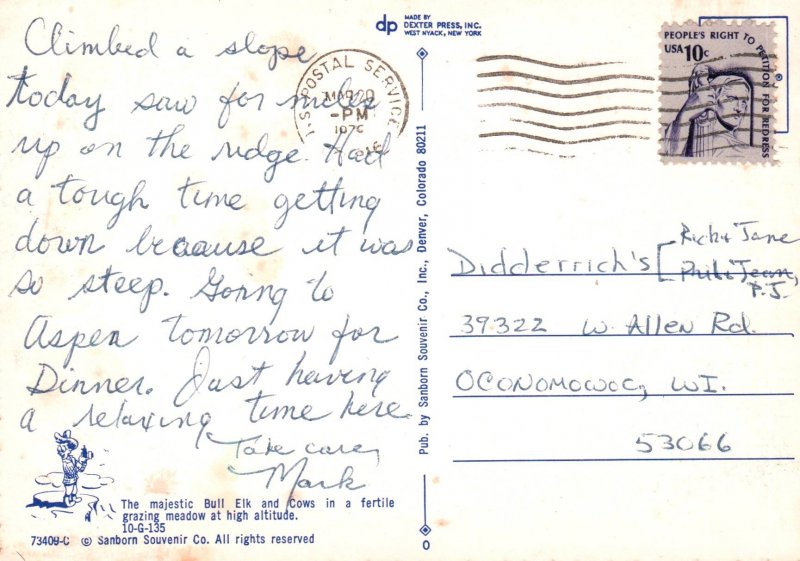 Climbed a slope
today saw for miles
up on the ridge. Had
a tough time getting
down because it was
so steep. Going to
Aspen tomorrow for
Dinner. Just having
a relaxing time here.
Take care,
Mark
The majestic Bull Elk and Cows in a fertile
grazing meadow at high altitude.
10-G-135
73409-C © Sanborn Souvenir Co. All rights reserved
dp MADE BY
DEXTER PRESS, INC.
WEST NYACK, NEW YORK
Pub. by Sanborn Souvenir Co., Inc., Denver, Colorado 80211
0
U.S. POSTAL SERVICE
MAR 20
-PM
PEOPLE'S RIGHT TO PETITION FOR REDRESS
USA 10c
®
Didderrich's
Rich & Jane
Phil & Jean,
P.J.
39322 W. Allen Rd.
OCONOMOWOC, WI.
53066